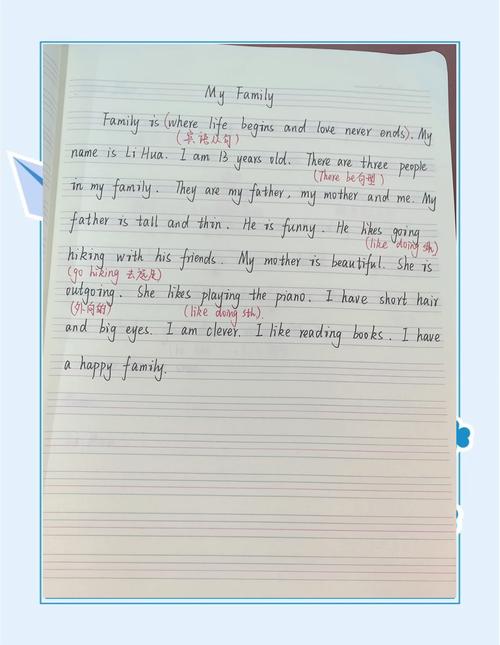 My Family
Family is (where life begins and love never ends). My
(宾语从句)
name is Li Hua. I am 13 years old. There are three people
(There be句型)
in my family. They are my father, my mother and me. My
father is tall and thin. He is funny. He likes going
(like doing sth)
hiking with his friends. My mother is beautiful. She is
(go hiking 去远足)
outgoing. She likes playing the piano. I have short hair
(外向的)
(like doing sth).
and big eyes. I am clever. I like reading books. I have
a happy family.